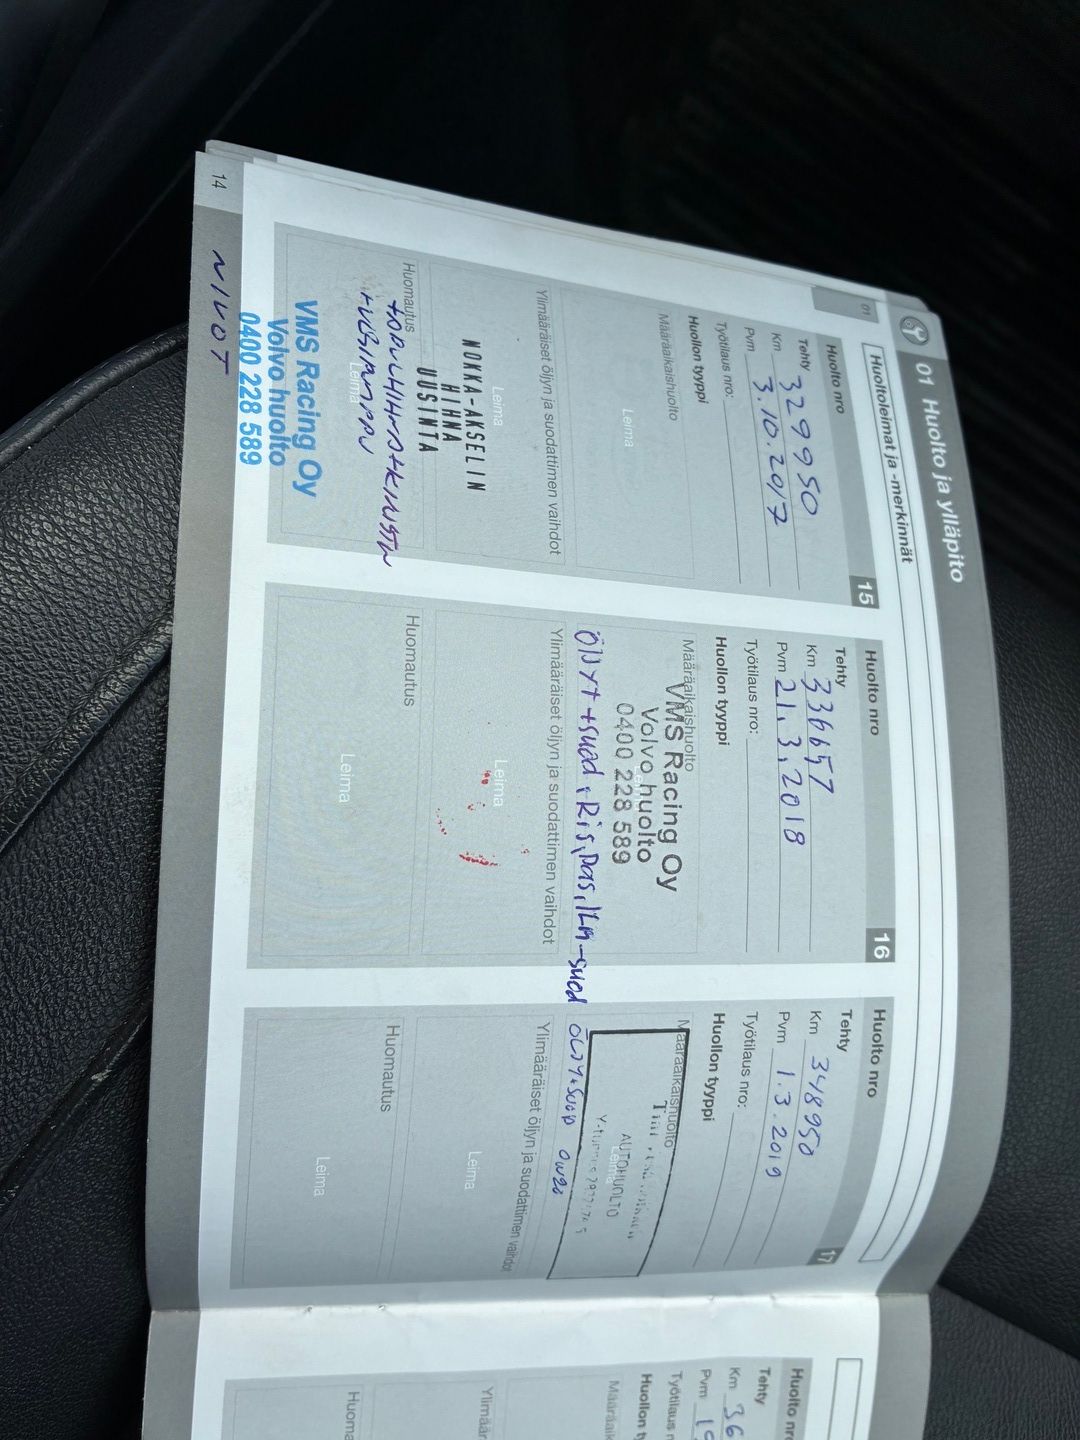 01 Huolto ja ylläpito
Huoltoleimat ja -merkinnät
01
Huolto nro 15
Tehty
Km 329950
Pvm 3.10.2017
Työtilaus nro:
Huollon tyyppi
Määräaikaishuolto
Leima
Ylimääräiset öljyn ja suodattimen vaihdot
Leima
NOKKA-AKSELIN
HIHNA
UUSINTA
Huomautus
Leima
VMS Racing Oy
Volvo huolto
0400 228 589
14
Huolto nro 16
Tehty
Km 336657
Pvm 21.3.2018
Työtilaus nro:
Huollon tyyppi
Määräaikaishuolto
VMS Racing Oy
Volvo huolto
0400 228 589
Öljyt+suod, Ris, Pas, ilm-suod
Ylimääräiset öljyn ja suodattimen vaihdot
Leima
Huomautus
Leima
Huolto nro 17
Tehty
Km 348950
Pvm 1.3.2019
Työtilaus nro:
Huollon tyyppi
Määräaikaishuolto
AUTOHUOLTO
Leima
ÖLJY+SUOD 0W20
Ylimääräiset öljyn ja suodattimen vaihdot
Leima
Huomautus
Leima
Huolto nro
Tehty
Km 36
Pvm 1
Työtilaus n
Huollon ty
Määräaik
Ylimäär
Huoma